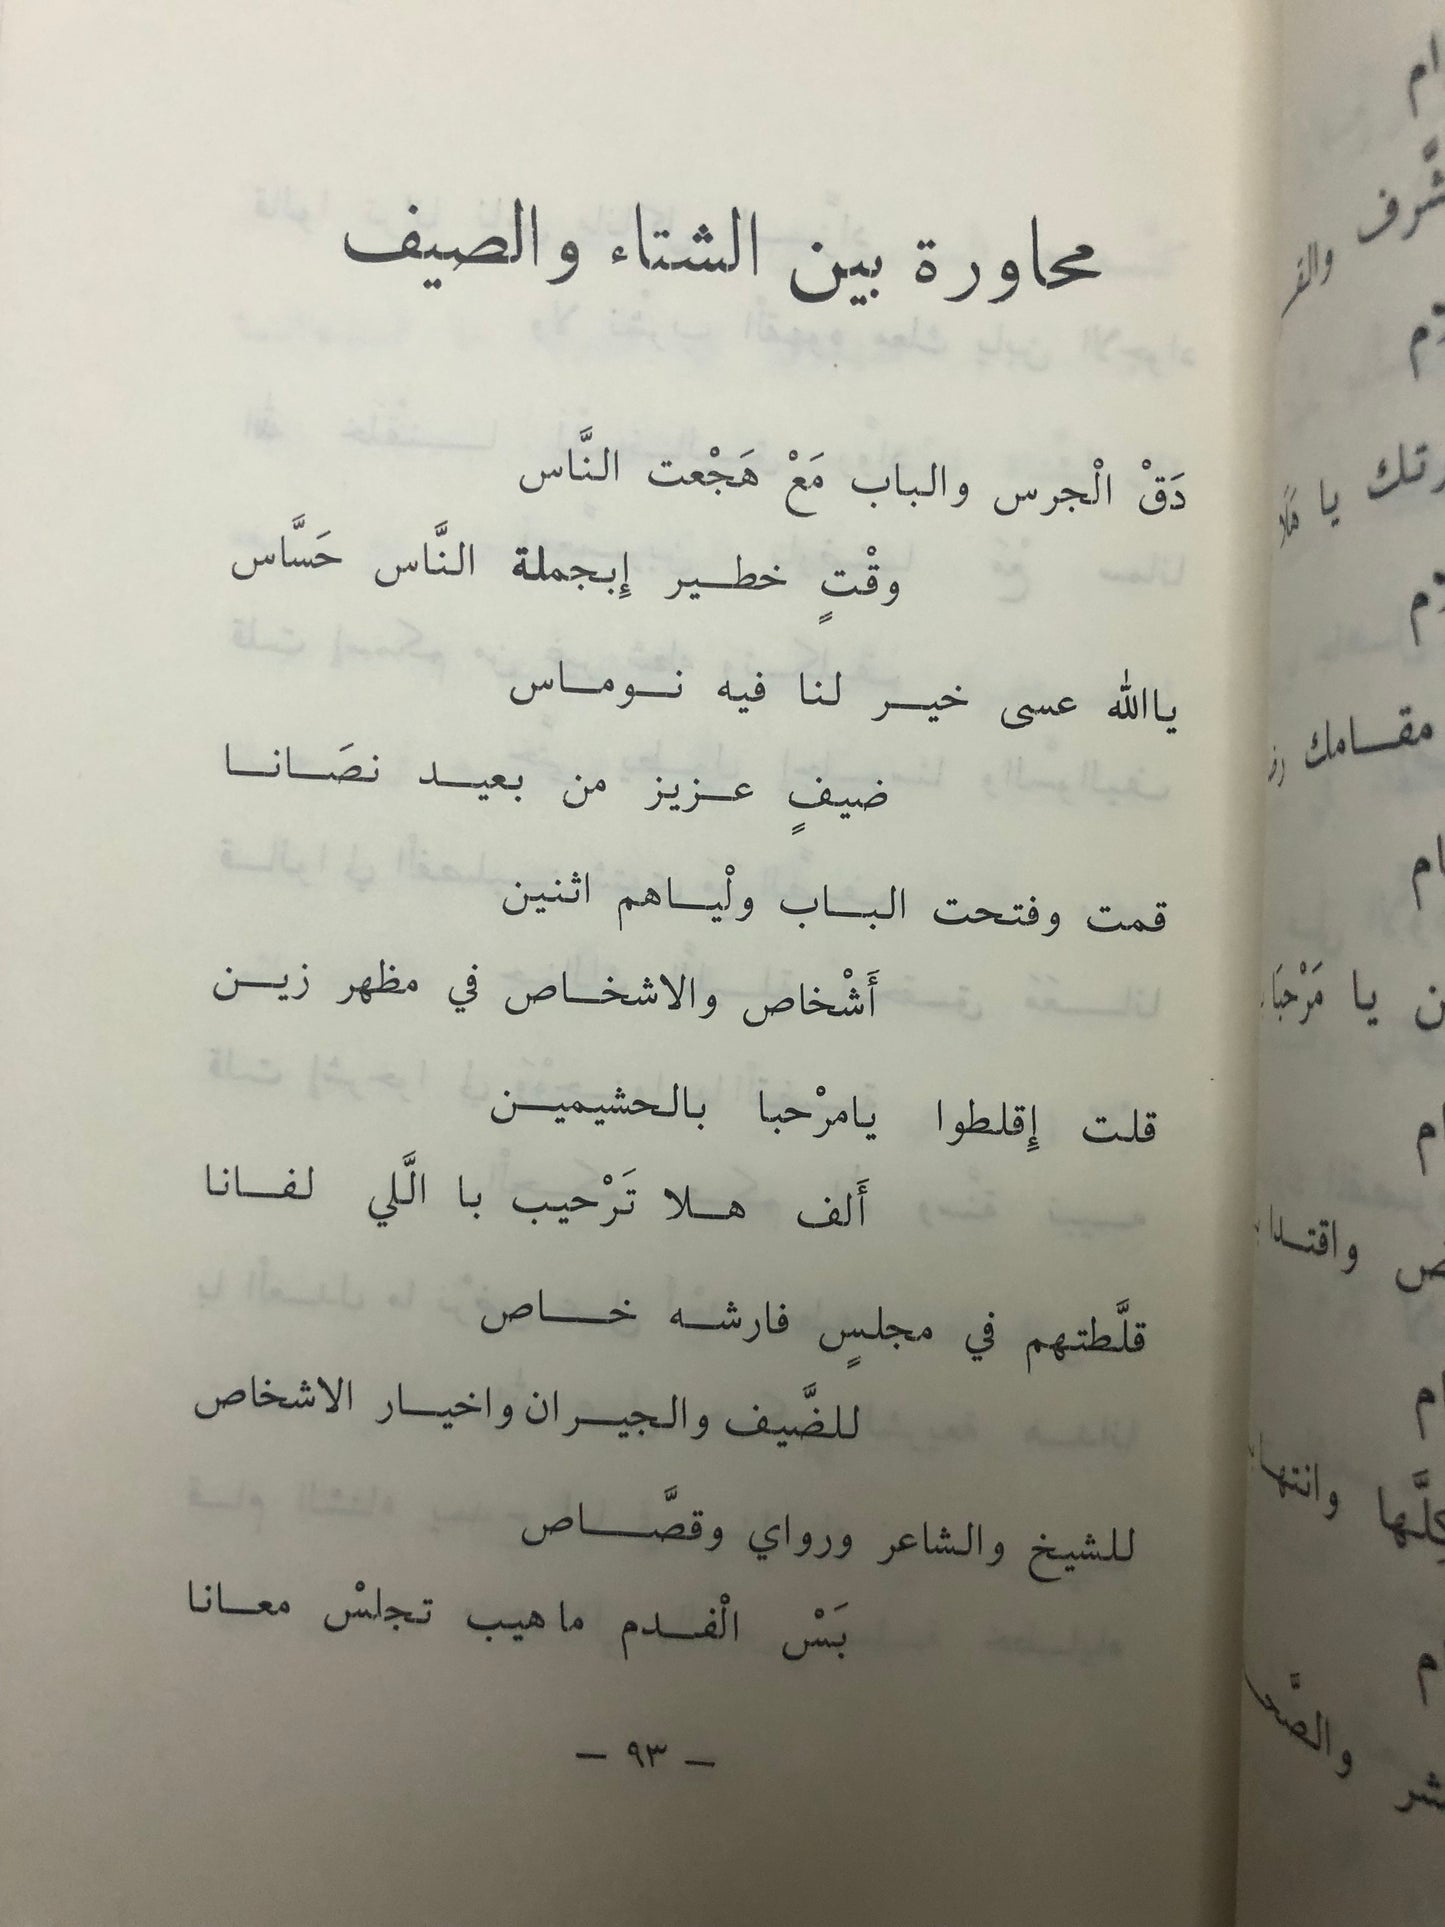 محاورة بين الشتاء والصيف
دَقْ الْجرس والباب مَعْ هَجْعت النَّاس
وقْتٍ خطير إِبجملة النَّاس حَسَّاس
ياالله عسى خير لنا فيه نوماس
ضيفٍ عزيز من بعيد نصَانا
قمت وفتحت الباب ولْياهم اثنين
أَشْخاص والاشخاص في مظهر زين
قلت إِقلطوا يامرْحبا بالحشيمين
أَلف هلا تَرْحيب با الَّلي لفانا
قلَّطتهم في مجلسٍ فارشه خاص
للضَّيف والجيران واخيار الاشخاص
للشيخ والشاعر ورواي وقصَّاص
بَسْ الْفدم ماهيب تجلسْ معانا
— ٩٣ —